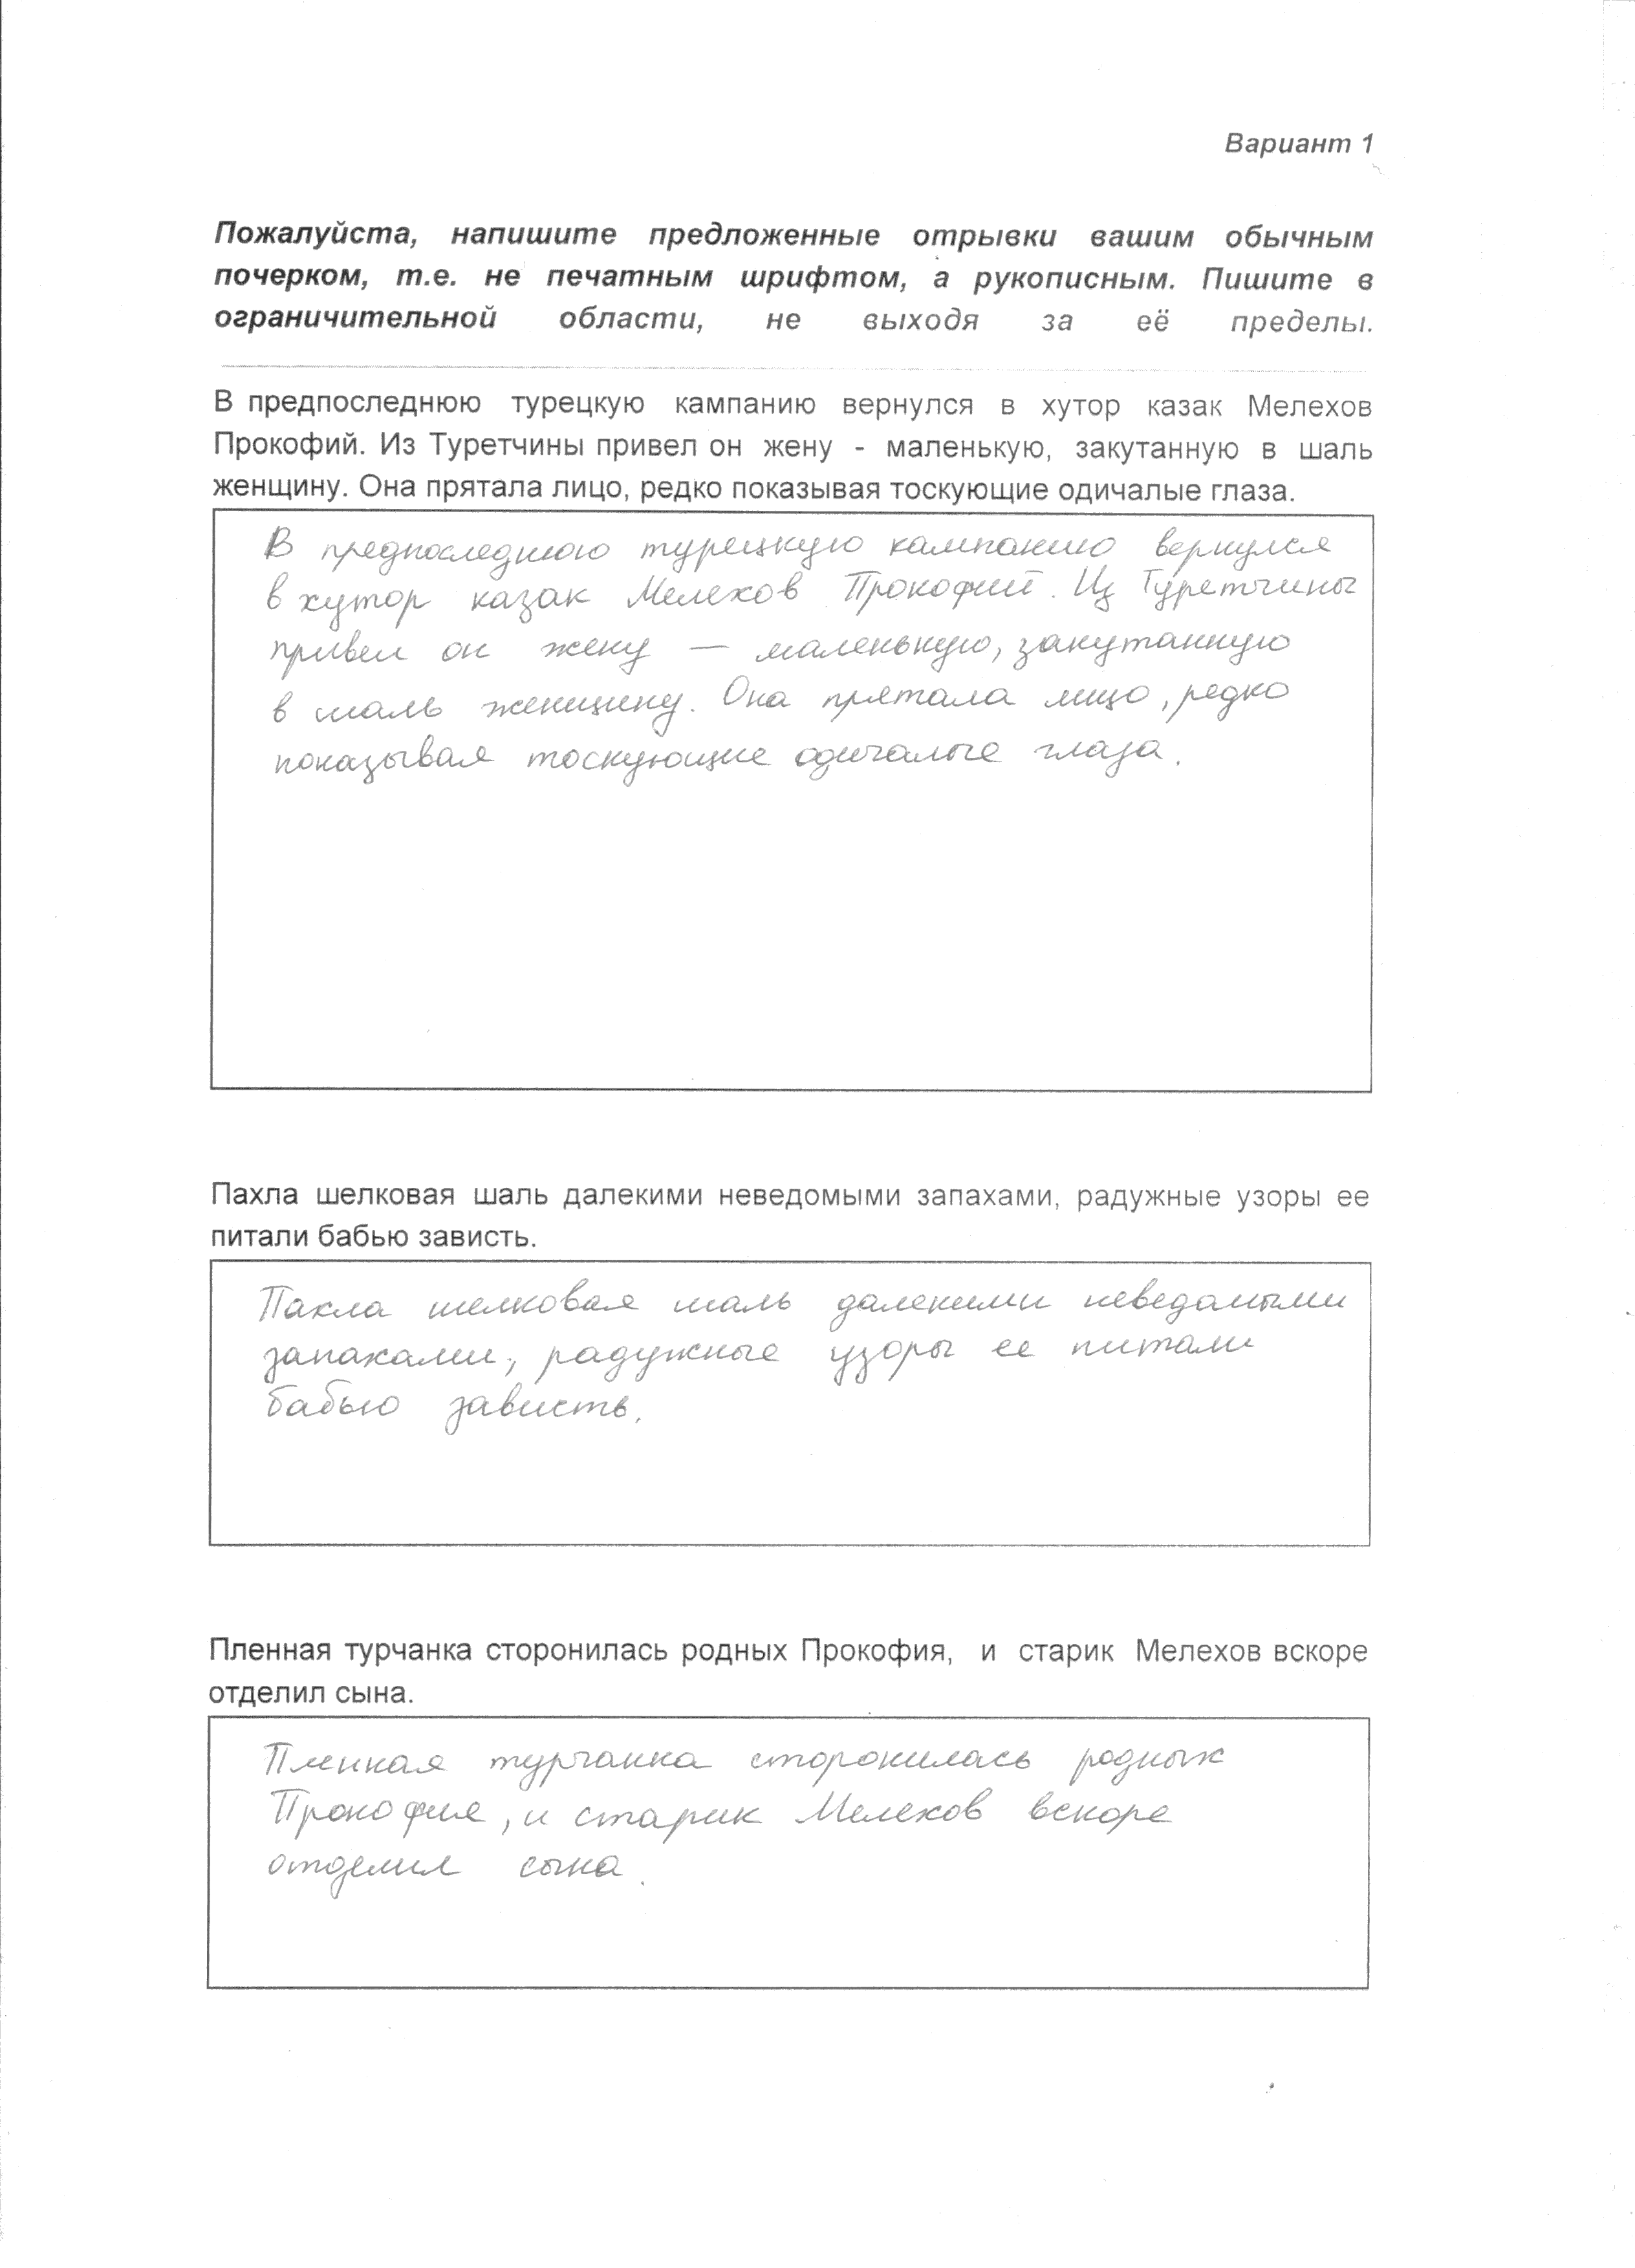 Вариант 1
Пожалуйста, напишите предложенные отрывки вашим обычным
почерком, т.е. не печатным шрифтом, а рукописным. Пишите в
ограничительной области, не выходя за её пределы.
В предпоследнюю турецкую кампанию вернулся в хутор казак Мелехов
Прокофий. Из Туретчины привел он жену - маленькую, закутанную в шаль
женщину. Она прятала лицо, редко показывая тоскующие одичалые глаза.
В предпоследнюю турецкую кампанию вернулся
в хутор казак Мелехов Прокофий. Из Туретчины
привел он жену — маленькую, закутанную
в шаль женщину. Она прятала лицо, редко
показывая тоскующие одичалые глаза.
Пахла шелковая шаль далекими неведомыми запахами, радужные узоры ее
питали бабью зависть.
Пахла шелковая шаль далекими неведомыми
запахами, радужные узоры ее питали
бабью зависть.
Пленная турчанка сторонилась родных Прокофия, и старик Мелехов вскоре
отделил сына.
Пленная турчанка сторонилась родных
Прокофия, и старик Мелехов вскоре
отделил сына.